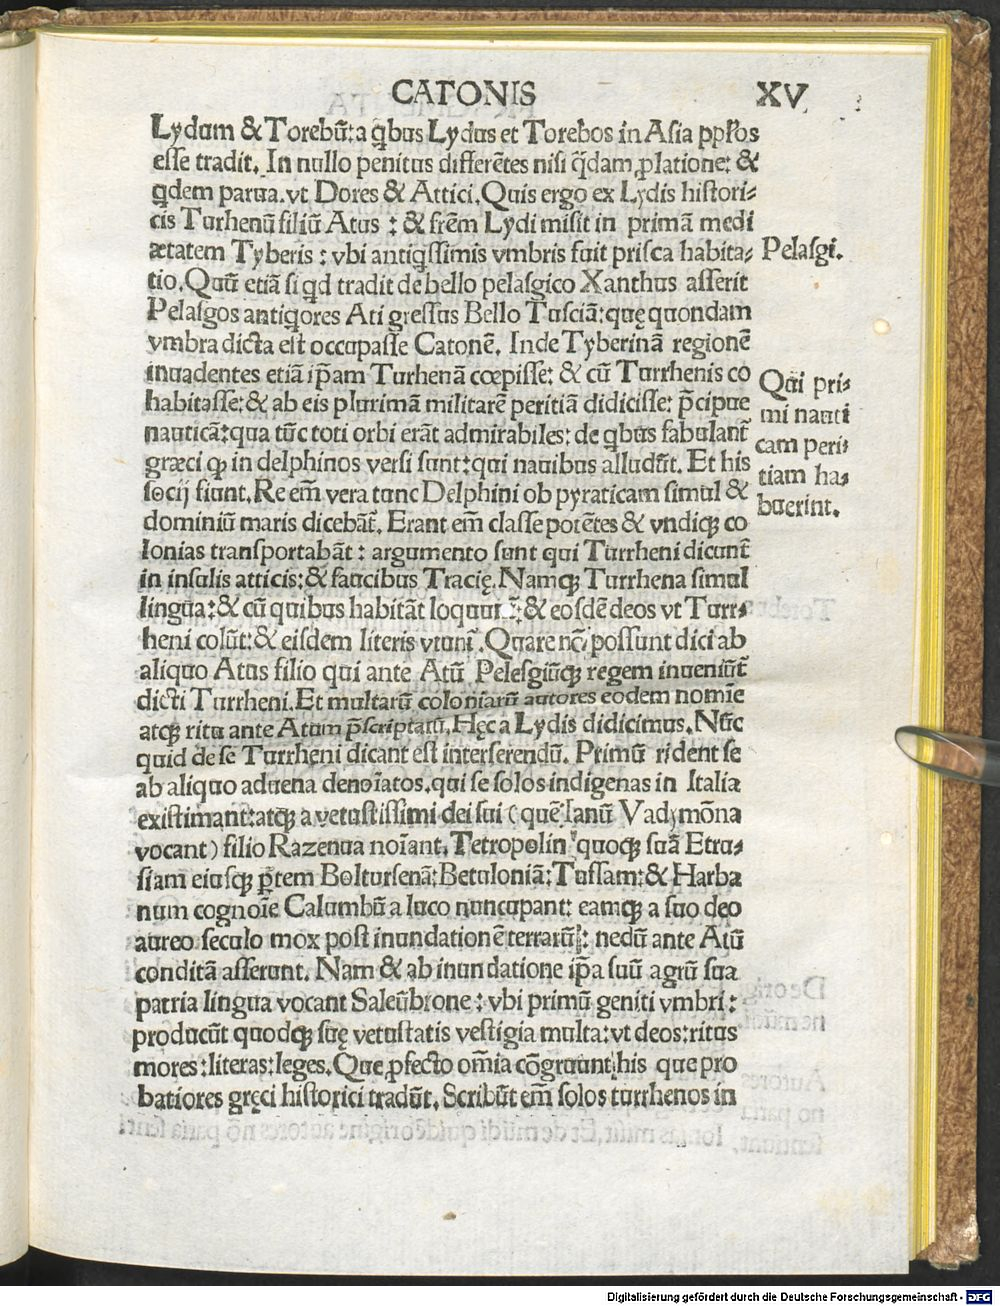 CATONIS XV
Lydum & Torebũ: a q̃bus Lydus et Torebos in Asia pp̃los
esse tradit. In nullo penitus differẽtes nisi q̃dam platione: &
qdem parua. vt Dores & Attici. Quis ergo ex Lydis histori⸗
cis Turhenũ filiũ Atus : & frẽm Lydi misit in primã medi
ætatem Tyberis : vbi antiqssimis vmbris fuit prisca habita⸗
Pelasgi.
tio. Quũ etiã si qd tradit de bello pelasgico Xanthus asserit
Pelasgos antiqores Ati gressus Bello Tusciã: quę quondam
vmbra dicta est occupasse Catonẽ. Inde Tyberinã regionẽ
inuadentes etiã ip̃am Turhenã cœpisse: & cũ Turrhenis co
habitasse: & ab eis plurimã militarẽ peritiã didicisse: p̃cipue
nauticã: qua tũc toti orbi erãt admirabiles: de qbus fabulant̃
Qui pri⸗
mi nauti
cam peri⸗
tiam ha⸗
buerint.
græci ꝙ in delphinos versi sunt: qui nauibus alludũt. Et his
socij fiunt. Re em̃ vera tunc Delphini ob pyraticam simul &
dominiũ maris dicebãt̃. Erant em̃ classe potẽtes & vndiqꝫ co
lonias transportabãt : argumento sunt qui Turrheni dicunt̃
in insulis atticis: & faucibus Tracię. Namqꝫ Turrhena simul
lingua: & cũ quibus habitãt loquunt̃: & eosdẽ deos vt Turr⸗
heni colũt: & eisdem literis vtunt̃. Quare nõ possunt dici ab
aliquo Atus filio qui ante Atũ Pelesgiũqꝫ regem inueniũt̃
dicti Turrheni. Et multarũ coloniarũ autores eodem nomĩe
atqꝫ ritu ante Atum p̃scriptarũ. Hęc a Lydis didicimus. Nũc
quid de se Turrheni dicant est interserendũ. Primũ rident se
ab aliquo aduena denoĩatos. qui se solos indigenas in Italia
existimant: atqꝫ a vetustissimi dei sui ( quẽ Ianũ Vadymõna
vocant ) filio Razenua noĩant. Tetropolin quoqꝫ suã Etru⸗
siam eiusqꝫ p̃tem Boltursenã: Betuloniã: Tussam: & Harba
num cognoĩe Calumbũ a luco nuncupant: eamqꝫ a suo deo
aureo seculo mox post inundationẽ terrarũ : nedũ ante Atũ
conditã asserunt. Nam & ab inundatione ip̃a suũ agrũ sua
patria lingua vocant Saleũbrone : vbi primũ geniti vmbri :
producũt quodqꝫ suę vetustatis vestigia multa: vt deos: ritus
mores: literas: leges. Que pfecto om̃ia cõgruunt his que pro
batiores gręci historici tradũt. Scribũt em̃ solos turrhenos in
Digitalisierung gefördert durch die Deutsche Forschungsgemeinschaft - DFG